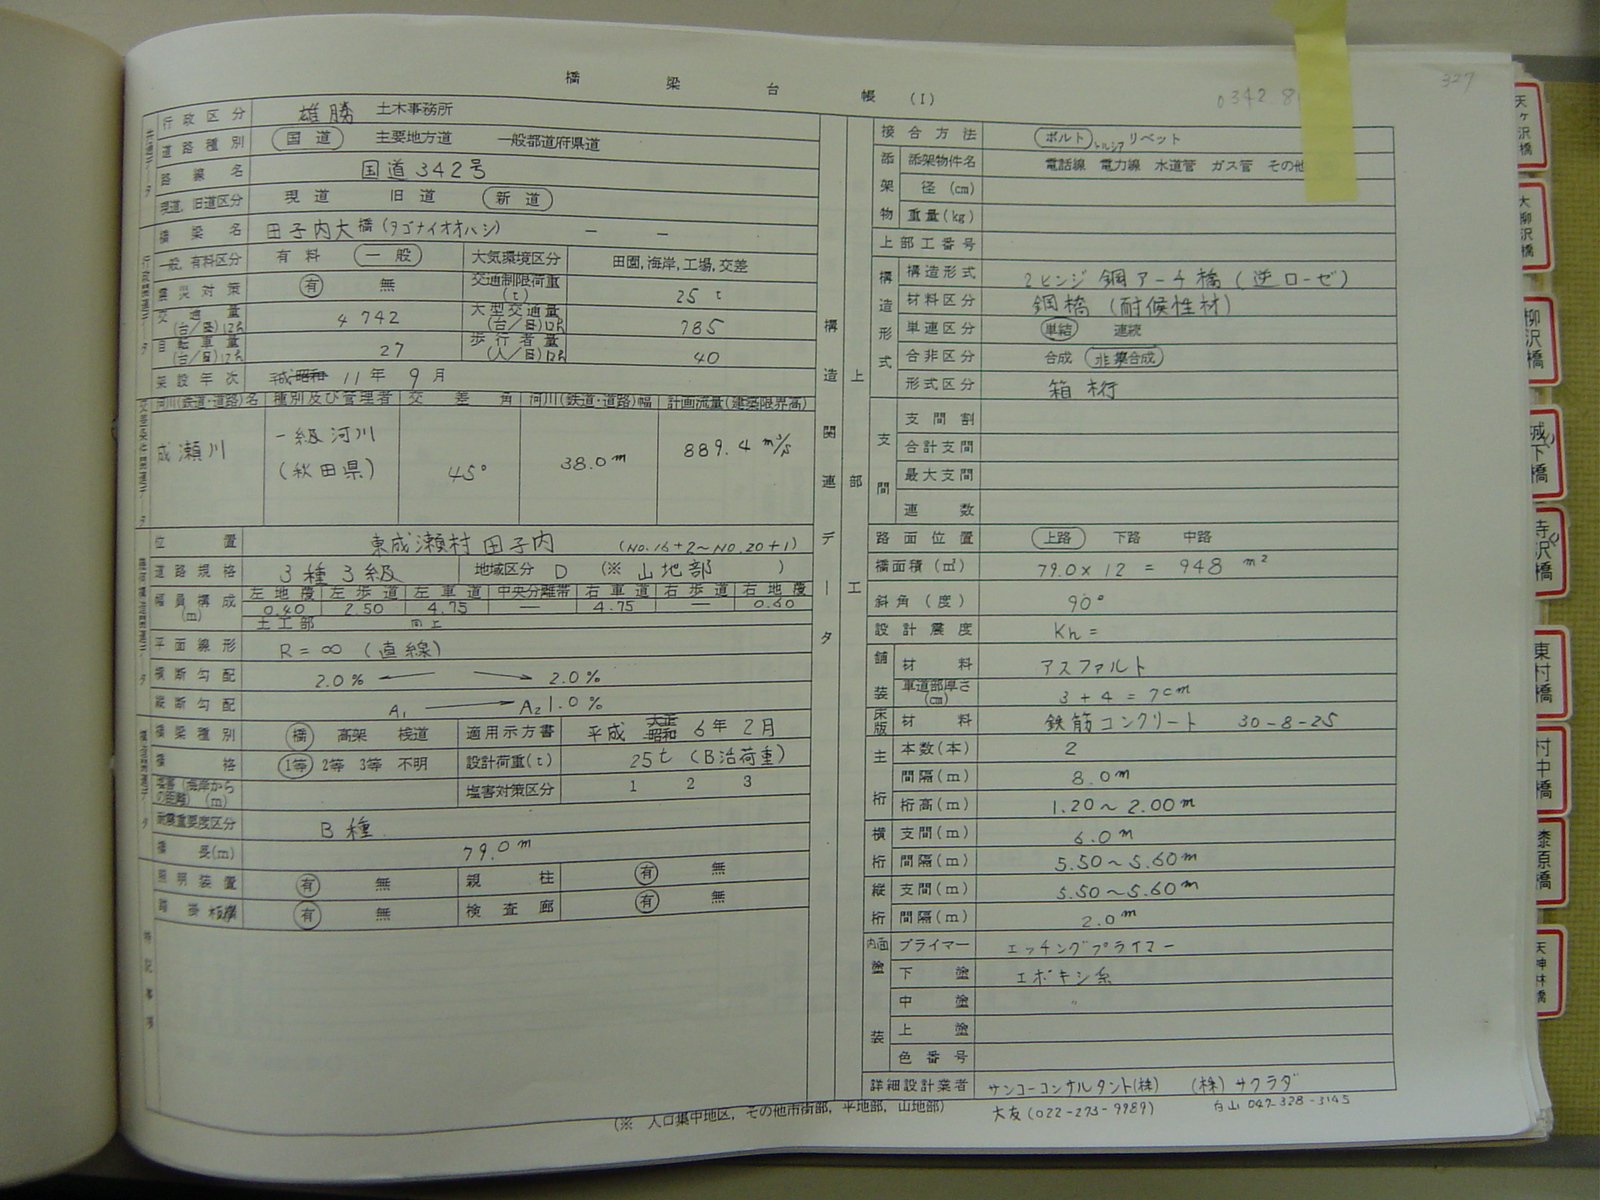 橋 梁 台 帳 (I)
0342
327
行政区分 雄勝 土木事務所
道路種別 国道 主要地方道 一般都道府県道
路線名 国道342号
現道,旧道区分 現道 旧道 新道
橋梁名 田子内大橋(タゴナイオオハシ) — —
一般,有料区分 有料 一般 大気環境区分 田園,海岸,工場,交差
震災対策 有 無 交通制限荷重(t) 25 t
交通量(台/日)12h 4742 大型交通量(台/日)12h 785
自転車量(台/日)12h 27 歩行者量(人/日)12h 40
架設年次 平成 昭和 11年 9月
河川(鉄道・道路)名 種別及び管理者 交差角 河川(鉄道・道路)幅 計画流量(建築限界高)
成瀬川 一級河川 (秋田県) 45° 38.0m 889.4 m³/s
位置 東成瀬村田子内 (NO.16+2~NO.20+1)
道路規格 3種3級 地域区分 D (※ 山地部 )
幅員構成(m) 左地覆 左歩道 左車道 中央分離帯 右車道 右歩道 右地覆
0.40 2.50 4.75 — 4.75 — 0.60
土工部 同上
平面線形 R=∞ (直線)
横断勾配 2.0% ← → 2.0%
縦断勾配 A1 → A2 1.0%
橋梁種別 橋 高架 桟道 適用示方書 平成 大正 昭和 6年 2月
橋格 1等 2等 3等 不明 設計荷重(t) 25t (B活荷重)
塩害(海岸からの距離)(m) 塩害対策区分 1 2 3
耐震重要度区分 B種
橋長(m) 79.0m
照明装置 有 無 親柱 有 無
踏掛板 有 無 検査廊 有 無
特記事項
構造関連データ
上部工
接合方法 ボルト トルシア リベット
添架物 添架物件名 電話線 電力線 水道管 ガス管 その他
径(cm)
重量(kg)
上部工番号
構造形式 構造形式 2ヒンジ鋼アーチ橋(逆ローゼ)
材料区分 鋼橋 (耐候性材)
単連区分 単結 連続
合非区分 合成 非集合成
形式区分 箱桁
支間 支間割
合計支間
最大支間
連数
路面位置 上路 下路 中路
橋面積(㎡) 79.0×12 = 948 m²
斜角(度) 90°
設計震度 Kh=
舗装 材料 アスファルト
車道部厚さ(cm) 3+4=7cm
床版 材料 鉄筋コンクリート 30-8-25
主桁 本数(本) 2
間隔(m) 8.0m
桁高(m) 1.20~2.00m
横桁 支間(m) 6.0m
間隔(m) 5.50~5.60m
縦桁 支間(m) 5.50~5.60m
間隔(m) 2.0m
内面塗装 プライマー エッチングプライマー
下塗 エポキシ系
中塗 〃
上塗
色番号
詳細設計業者 サンコーコンサルタント(株) (株)サクラダ
(※ 人口集中地区,その他市街部,平地部,山地部) 大友(022-273-9989) 白山 047-328-3145
天ヶ沢橋
大柳沢橋
柳沢橋
城下橋
寺沢橋
東村橋
村中橋
漆原橋
天神林橋